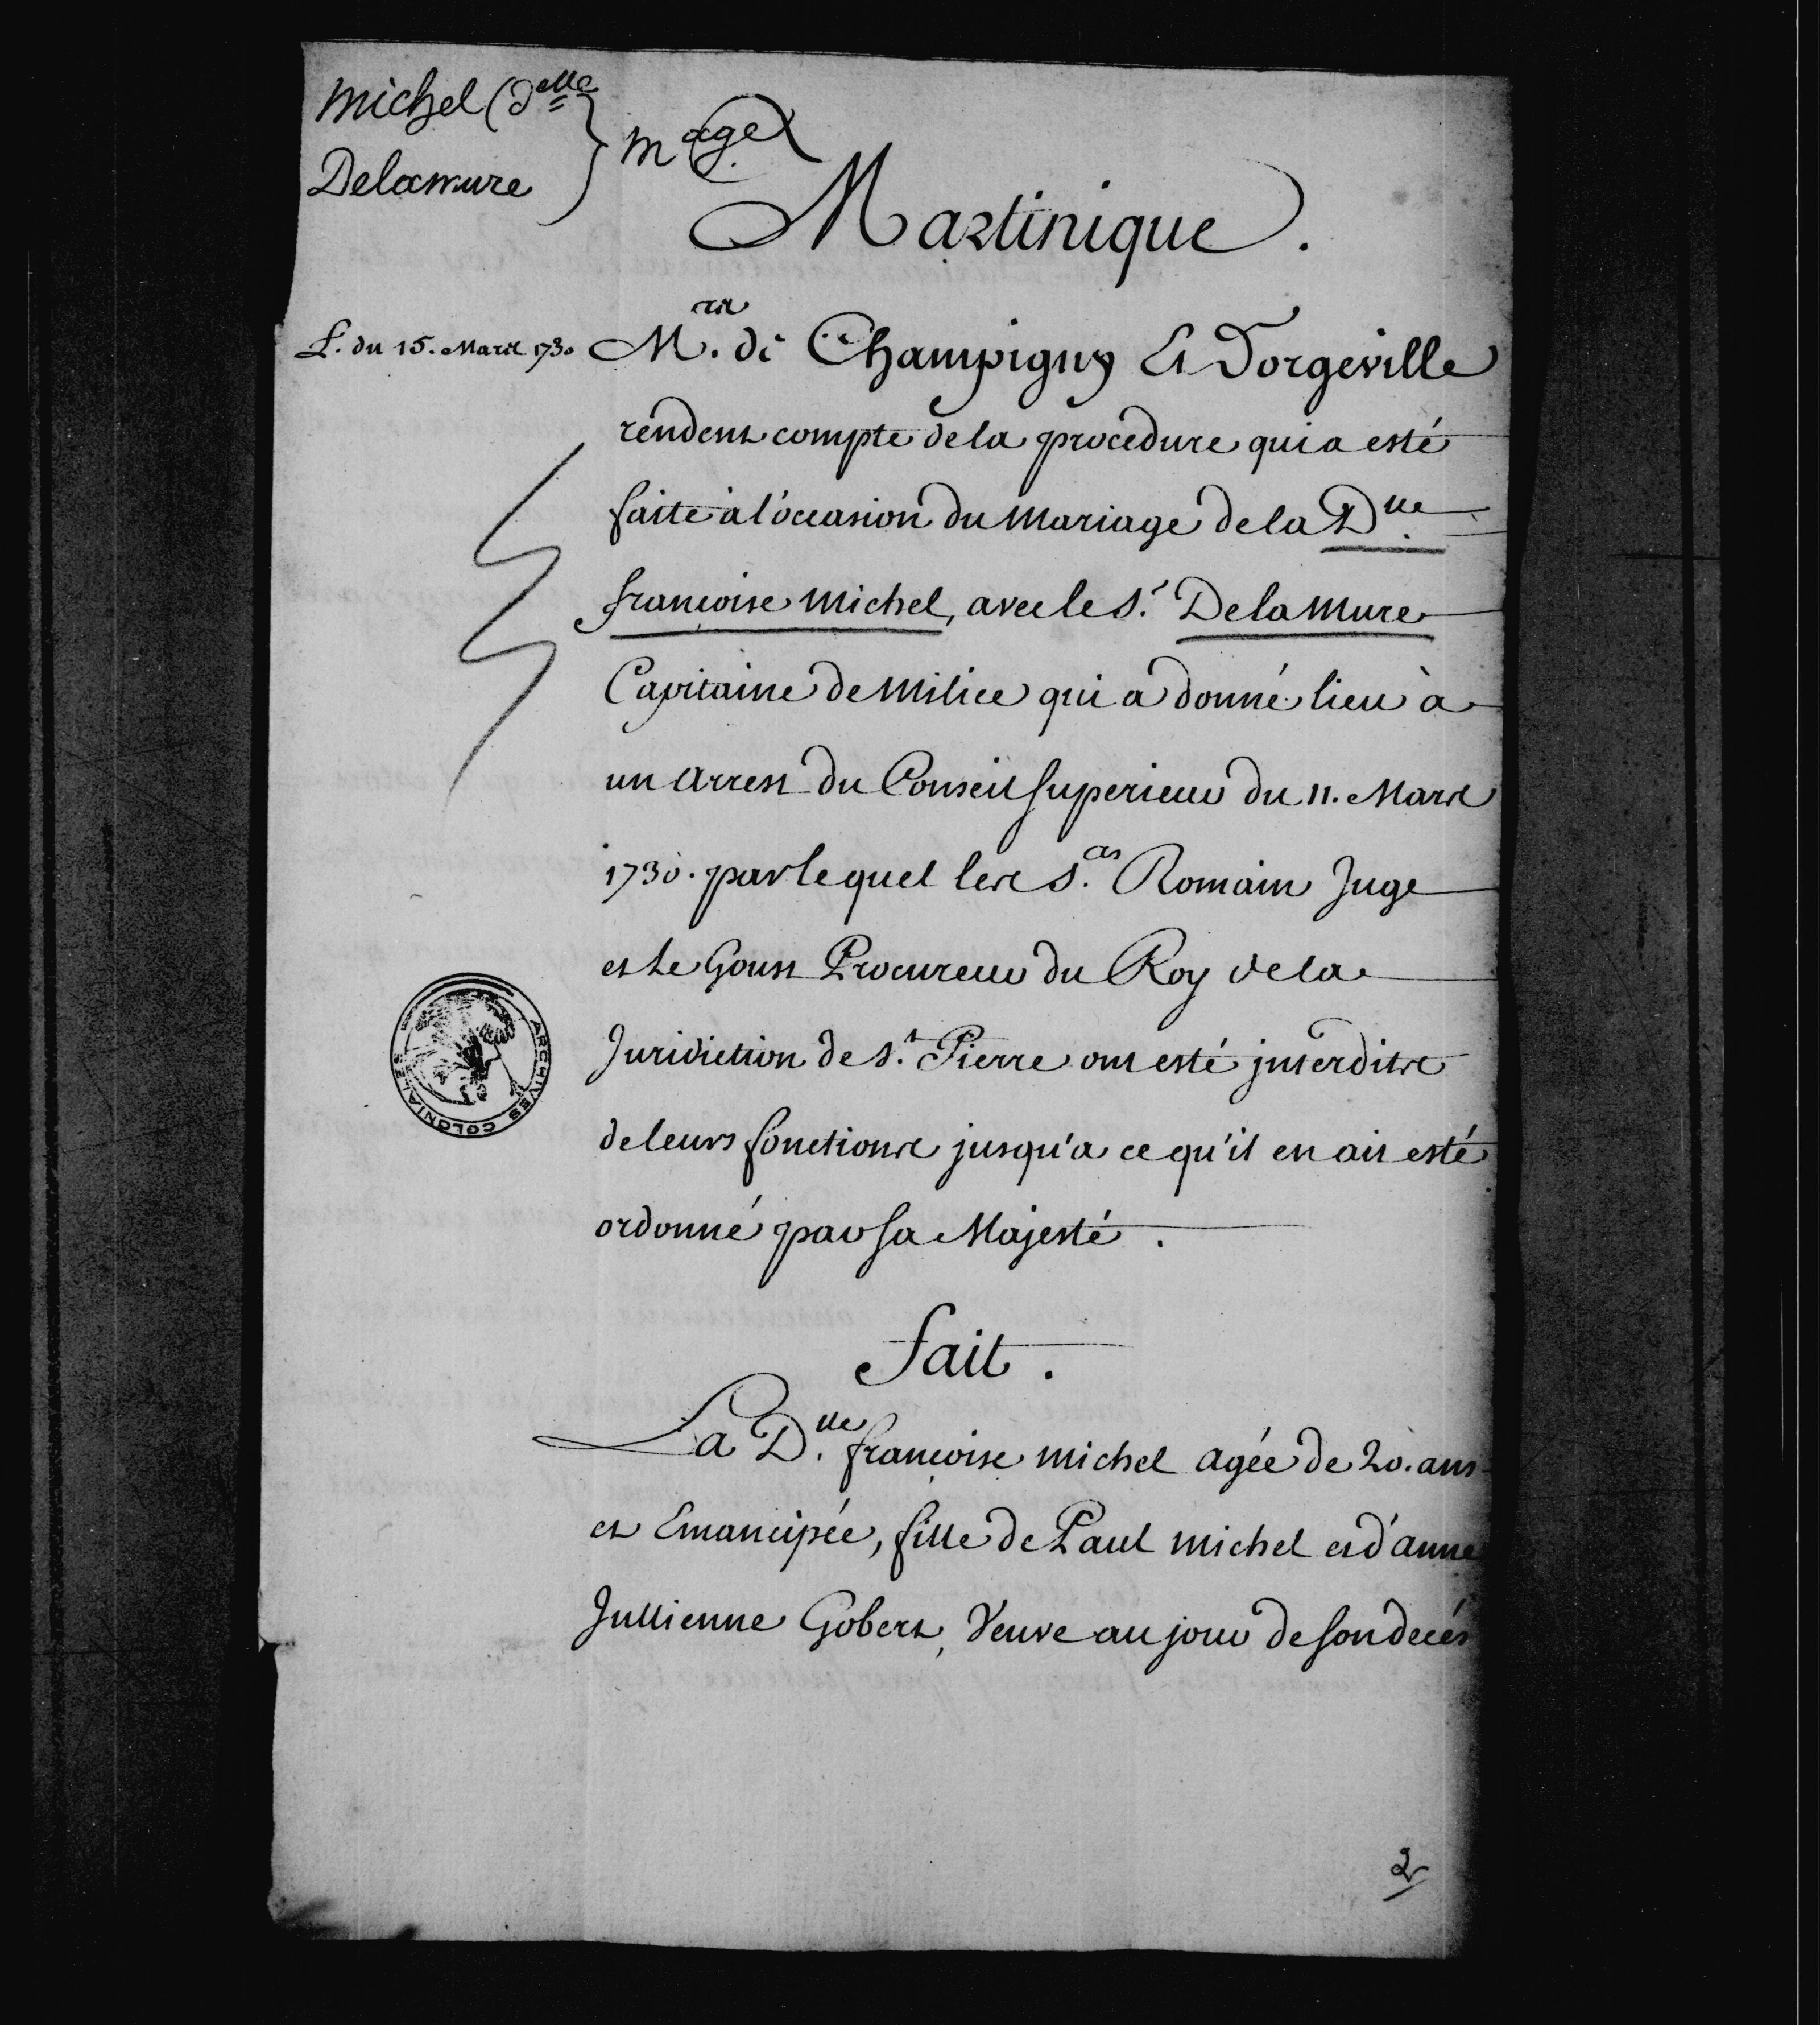 Michel (d.elle
Delamure } mage
Martinique.
L. du 15. Mars 1730
Mrs. de Champigny Et Dorgeville
rendent compte de la procedure qui a esté
faite à l'occasion du Mariage de la Dlle.
françoise Michel, avec le Sr. De la Mure
Capitaine de Milice qui a donné lieu à
un arrest du Conseil Superieur du 11. Mars
1730. par lequel les Srs. Romain Juge
et Le Goust Procureur du Roy de la
Juridiction de St. Pierre ont esté interdits
de leurs fonctions jusqu'a ce qu'il en ait esté
ordonné par sa Majesté.
ARCHIVES COLONIALES
fait.
La Dlle. françoise Michel agée de 20. ans
et Emancipée, fille de Paul Michel et d'anne
Jullienne Gobert, Veuve au jour de son decés
2